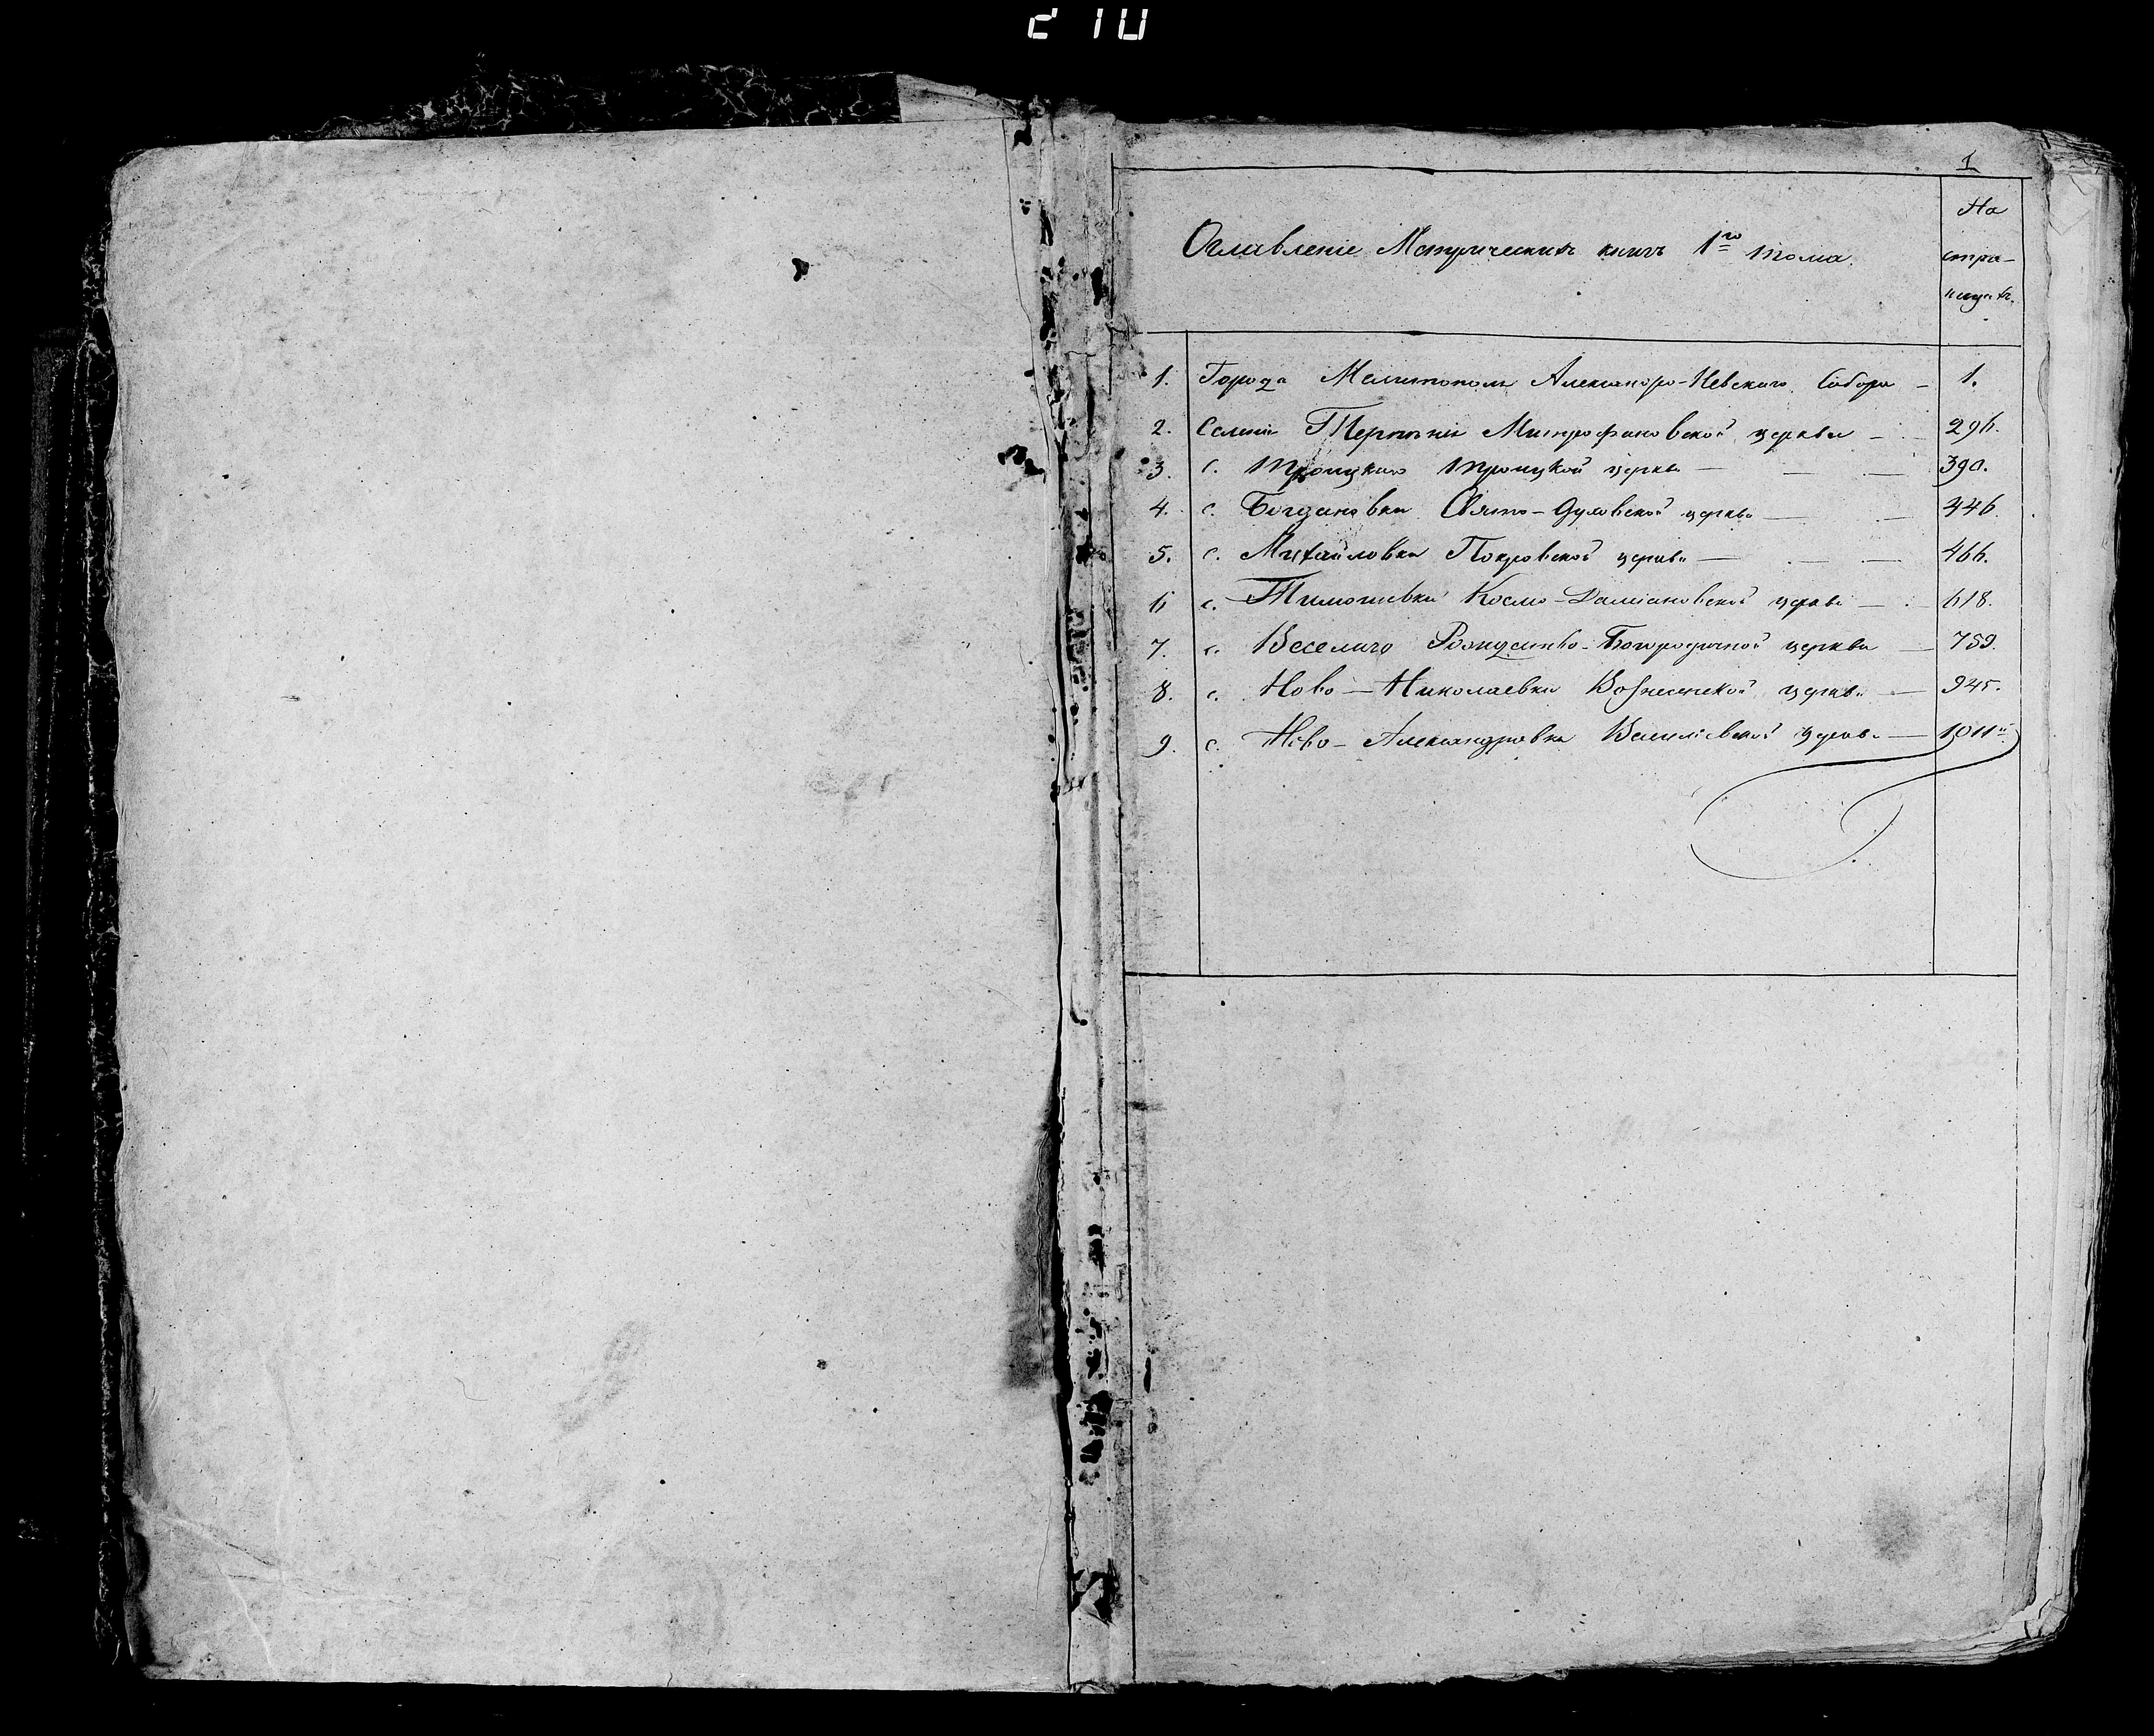 210
1
Оглавленіе Метрическихъ книгъ 1го тома.
На
стра-
ницахъ.
1. Города Мелитополя Александро-Невскаго Собора – 1.
2. Селенія Терпѣнія Митрофановской церкви – 296.
3. с. Троицкаго Троицкой церкви — — — 390.
4. с. Богдановки Свято-Духовской церкви — — 446.
5. с. Михайловки Покровской церкви — — — 466.
6 с. Тимошевки Космо-Даміановской церкви — 618.
7. с. Веселаго Рождество-Богородичной церкви — 759.
8. с. Ново-Николаевки Вознесенской церкви — 945.
9. с. Ново-Александровки Василіевской церкви — 1011